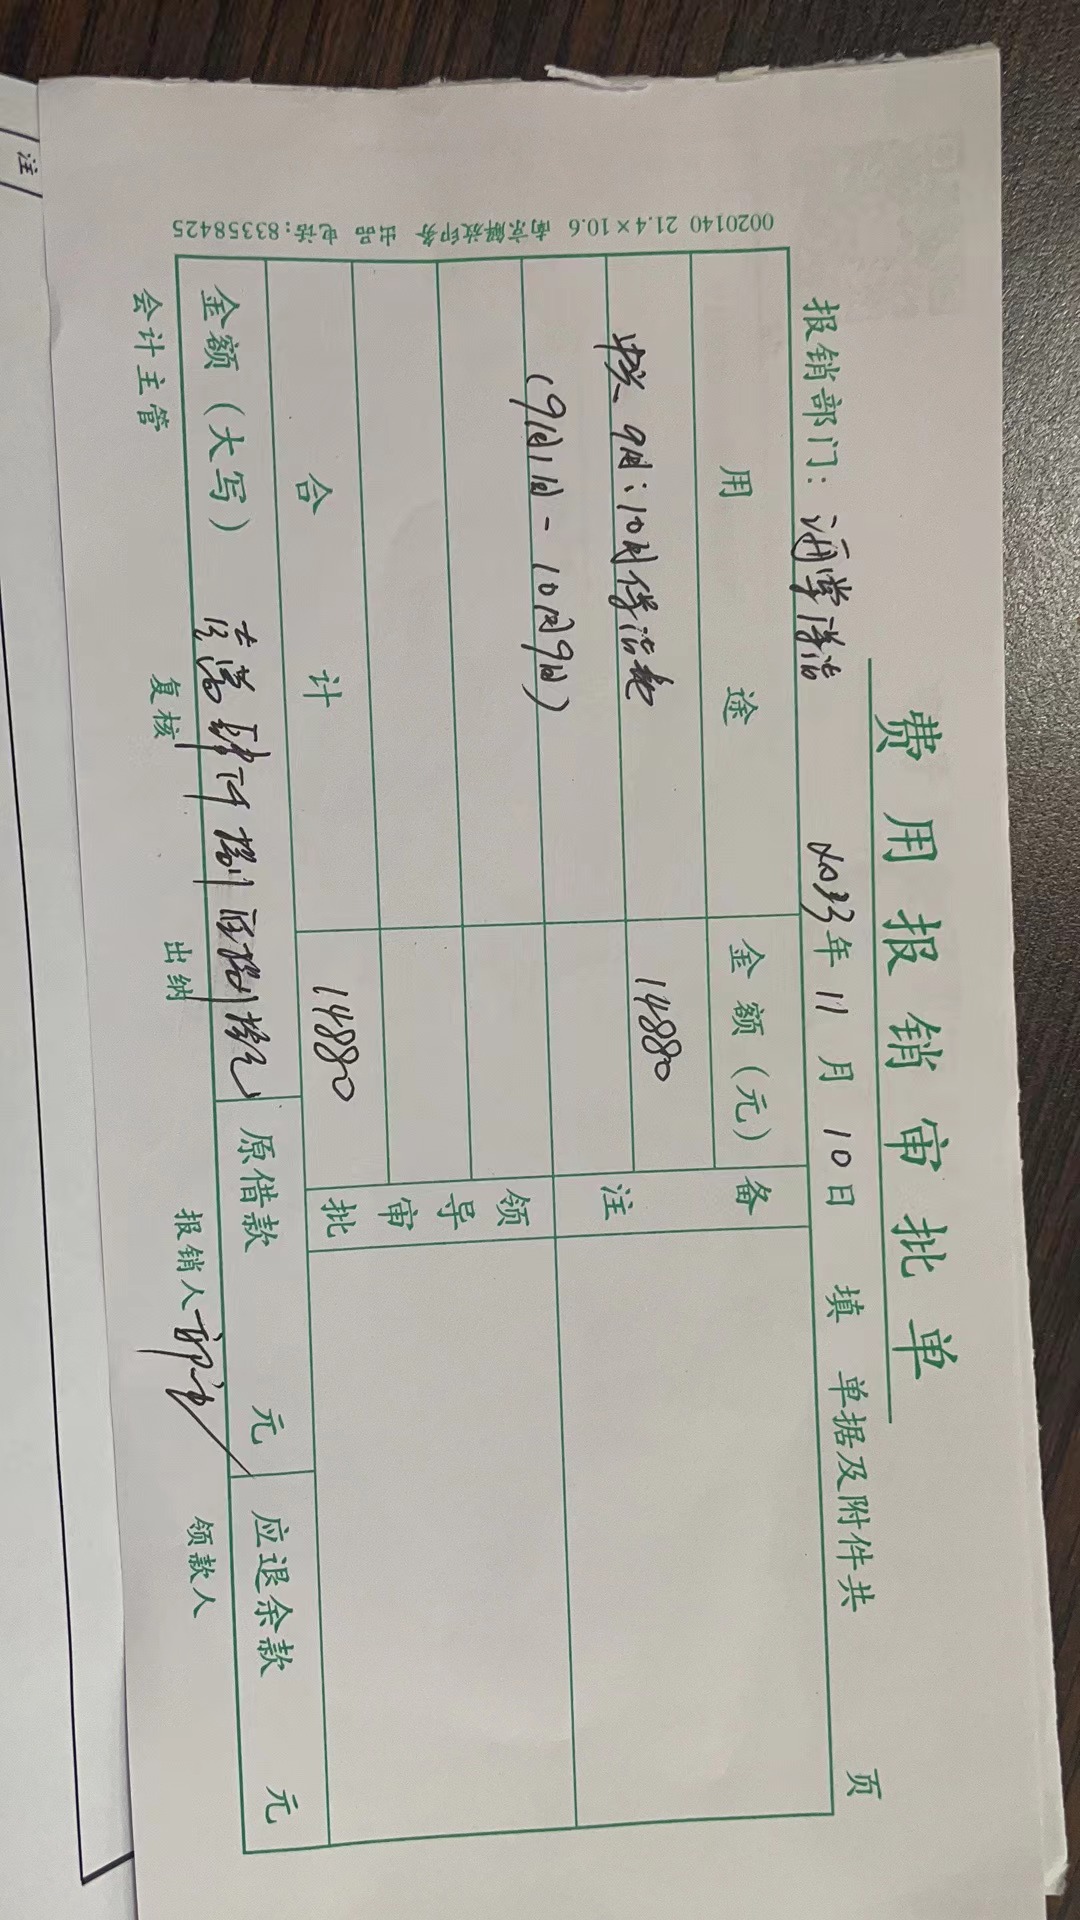 费用报销审批单
报销部门： 年 11 月 10 日 填 单据及附件共 页
用途 金额（元） 备注
9月、10月 14880
（9月1日-10月9日）
领导审批
合计 14880
金额（大写） 壹万肆仟捌佰捌拾元 原借款 元 应退余款 元
会计主管 复核 出纳 报销人 领款人
0020140 21.4×10.6 南京解放印务 出品 电话:83358425
注